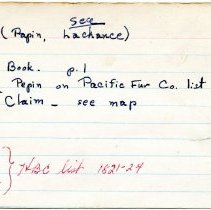 see
(Papin, Lachance)
Book. p. 1
Pepin on Pacific Fur Co. list
Claim - see map
} HBC list 1821-24